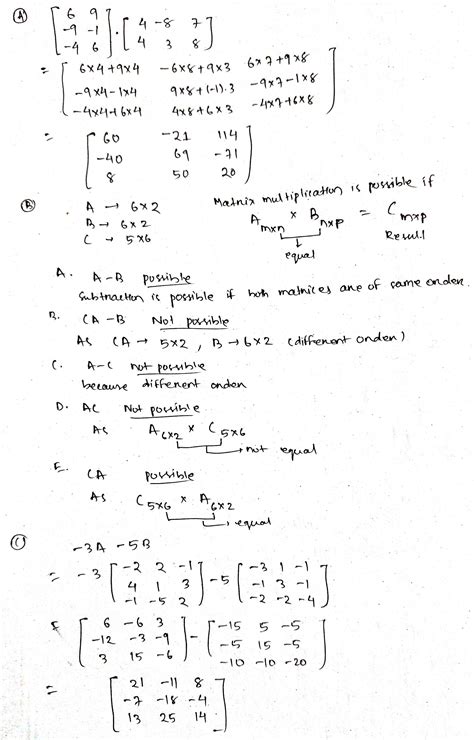 (A) [6 9; -9 -1; -4 6] . [4 -8 7; 4 3 8]
= [6x4+9x4 -6x8+9x3 6x7+9x8
-9x4-1x4 9x8+(-1).3 -9x7-1x8
-4x4+6x4 4x8+6x3 -4x7+6x8]
= [60 -21 114
-40 69 -71
8 50 20]
(B) A → 6x2
B → 6x2
C → 5x6
Matrix multiplication is possible if
A mxn x B nxp = C mxp
equal
Result
A. A-B possible
Subtraction is possible if both matrices are of same order.
B. CA-B Not possible
As CA → 5x2, B → 6x2 (different order)
C. A-C not possible
because different order
D. AC Not possible
As A 6x2 x C 5x6
→ not equal
E. CA possible
As C 5x6 x A 6x2
→ equal
(C) -3A -5B
= -3 [-2 2 -1; 4 1 3; -1 -5 2] -5 [-3 1 -1; -1 3 -1; -2 -2 -4]
= [6 -6 3; -12 -3 -9; 3 15 -6] - [-15 5 -5; -5 15 -5; -10 -10 -20]
= [21 -11 8
-7 -18 -4
13 25 14]